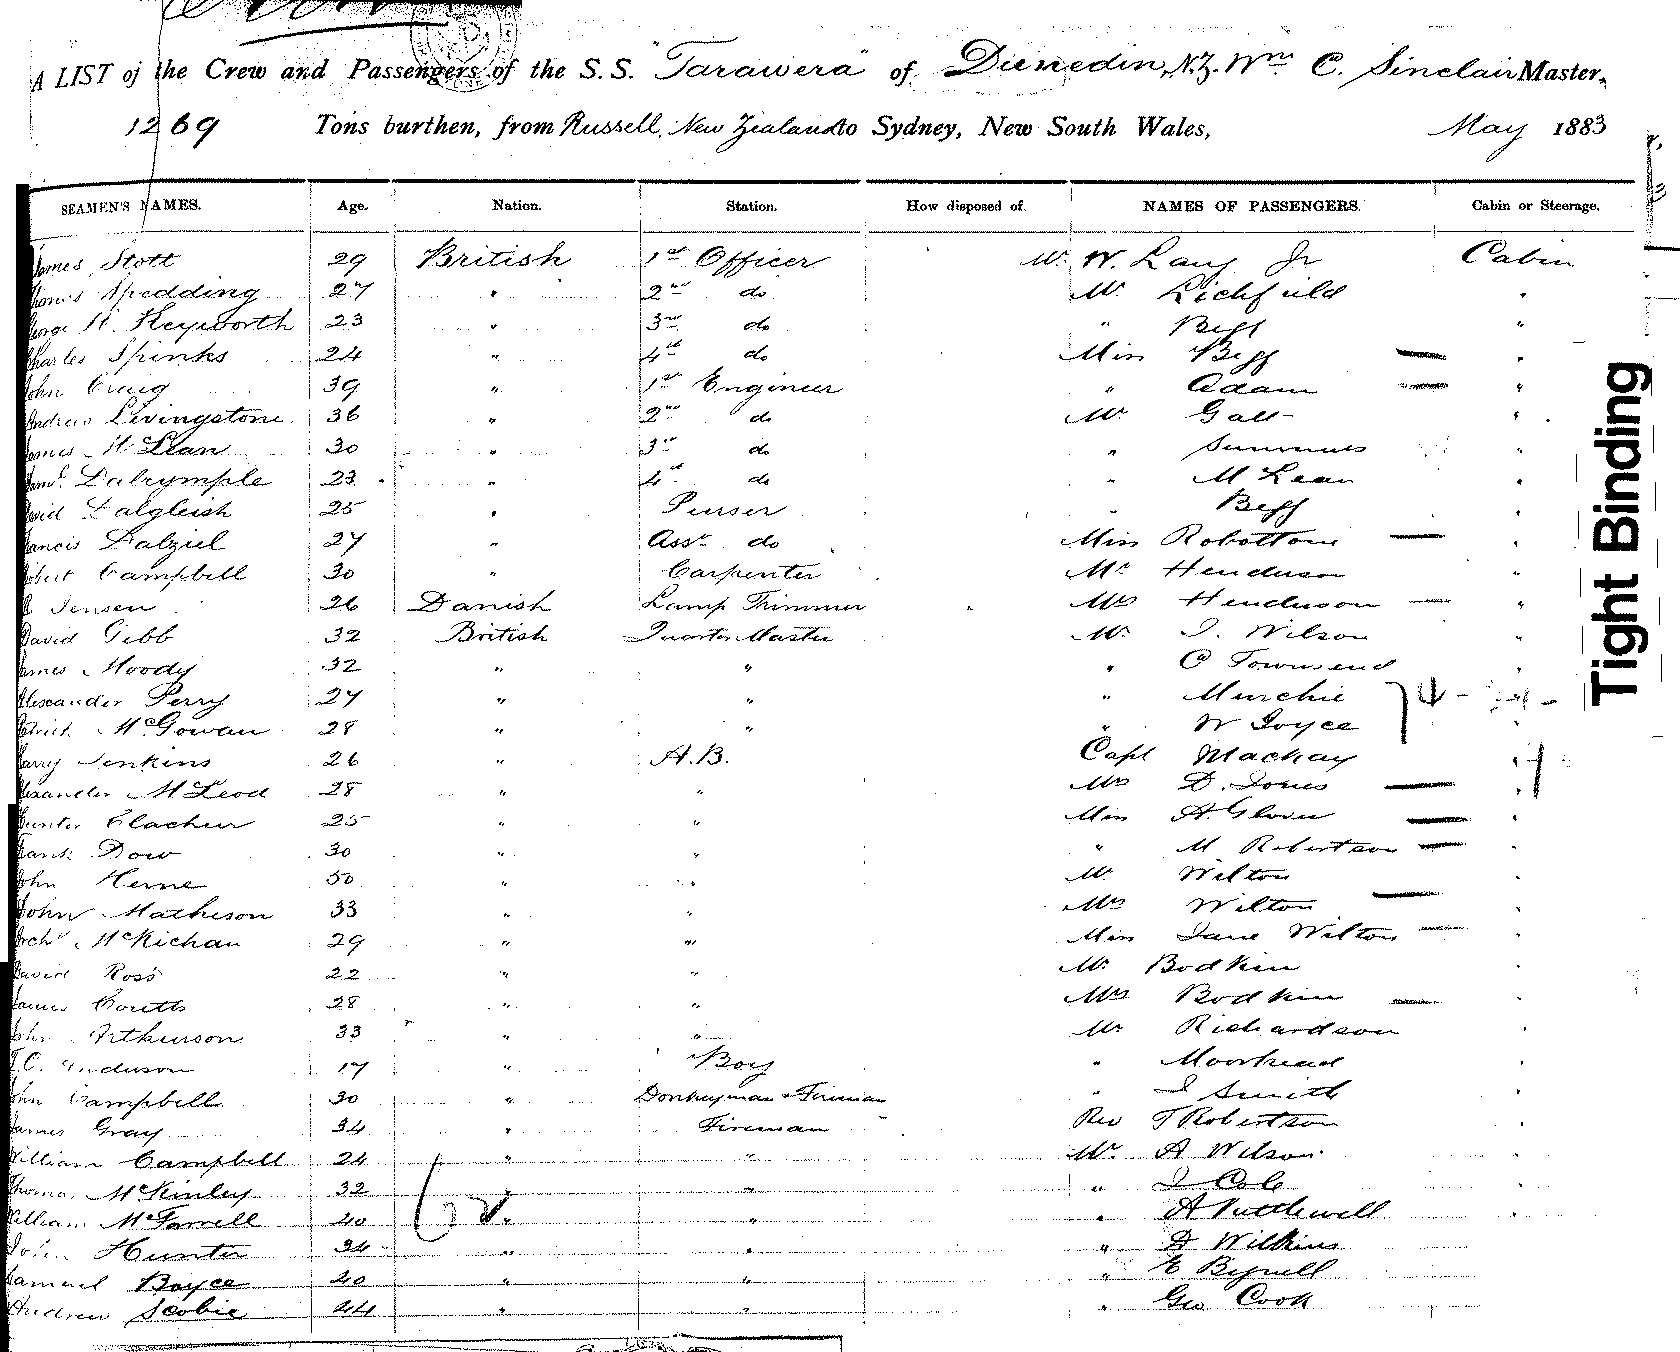 A LIST of the Crew and Passengers of the S.S. "Tarawera" of Dunedin, N.Z. Wm C. Sinclair Master,
1269 Tons burthen, from Russell, New Zealand to Sydney, New South Wales, May 1883
SEAMEN'S NAMES. Age. Nation. Station. How disposed of. NAMES OF PASSENGERS. Cabin or Steerage.
James Stott 29 British 1st Officer Mr W. Lang Jr Cabin
Thomas Spedding 27 " 2nd do Mr Lichfield "
George H. Heyworth 23 " 3rd do " Begg "
Charles Spinks 24 " 4th do Miss Begg "
John Craig 39 " 1st Engineer " Adam "
Andrew Livingstone 36 " 2nd do Mr Galt "
James McLean 30 " 3rd do " "
Dalrymple 23 " 4th do " McLean "
David Dalgleish 25 " Purser Begg "
Francis Dalziel 27 " Asst do Miss Robottom "
Robert Campbell 30 " Carpenter Mr Henderson "
Jensen 26 Danish Lamp Trimmer Mrs Henderson "
David Gibb 32 British Quarter Master Mr J. Wilson "
James Moody 32 " " " C Townsend "
Alexander Perry 27 " " " Murchie
Patrick McGowan 28 " " " W Joyce
Harry Jenkins 26 " A.B. Capt Mackay "
Alexander McLeod 28 " " Mrs D. Jones "
Hunter Clacher 25 " " Miss A. Glover "
Frank Dow 30 " " " M Robertson "
John Herne 50 " " Mr Wilton "
John Matheson 33 " " Mrs Wilton "
Archd McKichan 29 " " Miss Jane Wilton "
David Ross 22 " " Mr Bodkin "
James Coutts 28 " " Mrs Bodkin "
John 33 " " Mr Richardson "
Anderson 17 " Boy " Moorhead "
John Campbell 30 " Donkeyman & Fireman " J Smith "
James Gray 34 " Fireman Rev T Robertson "
William Campbell 24 " " Mr A Wilson "
Thomas McKinley 32 " " " J Cole "
William McFarrell 40 " " " A "
John Hunter 34 " " " D Wilkins
Samuel Boyce 40 " " " E
Andrew Scobie 44 " " " Geo Cook
Tight Binding